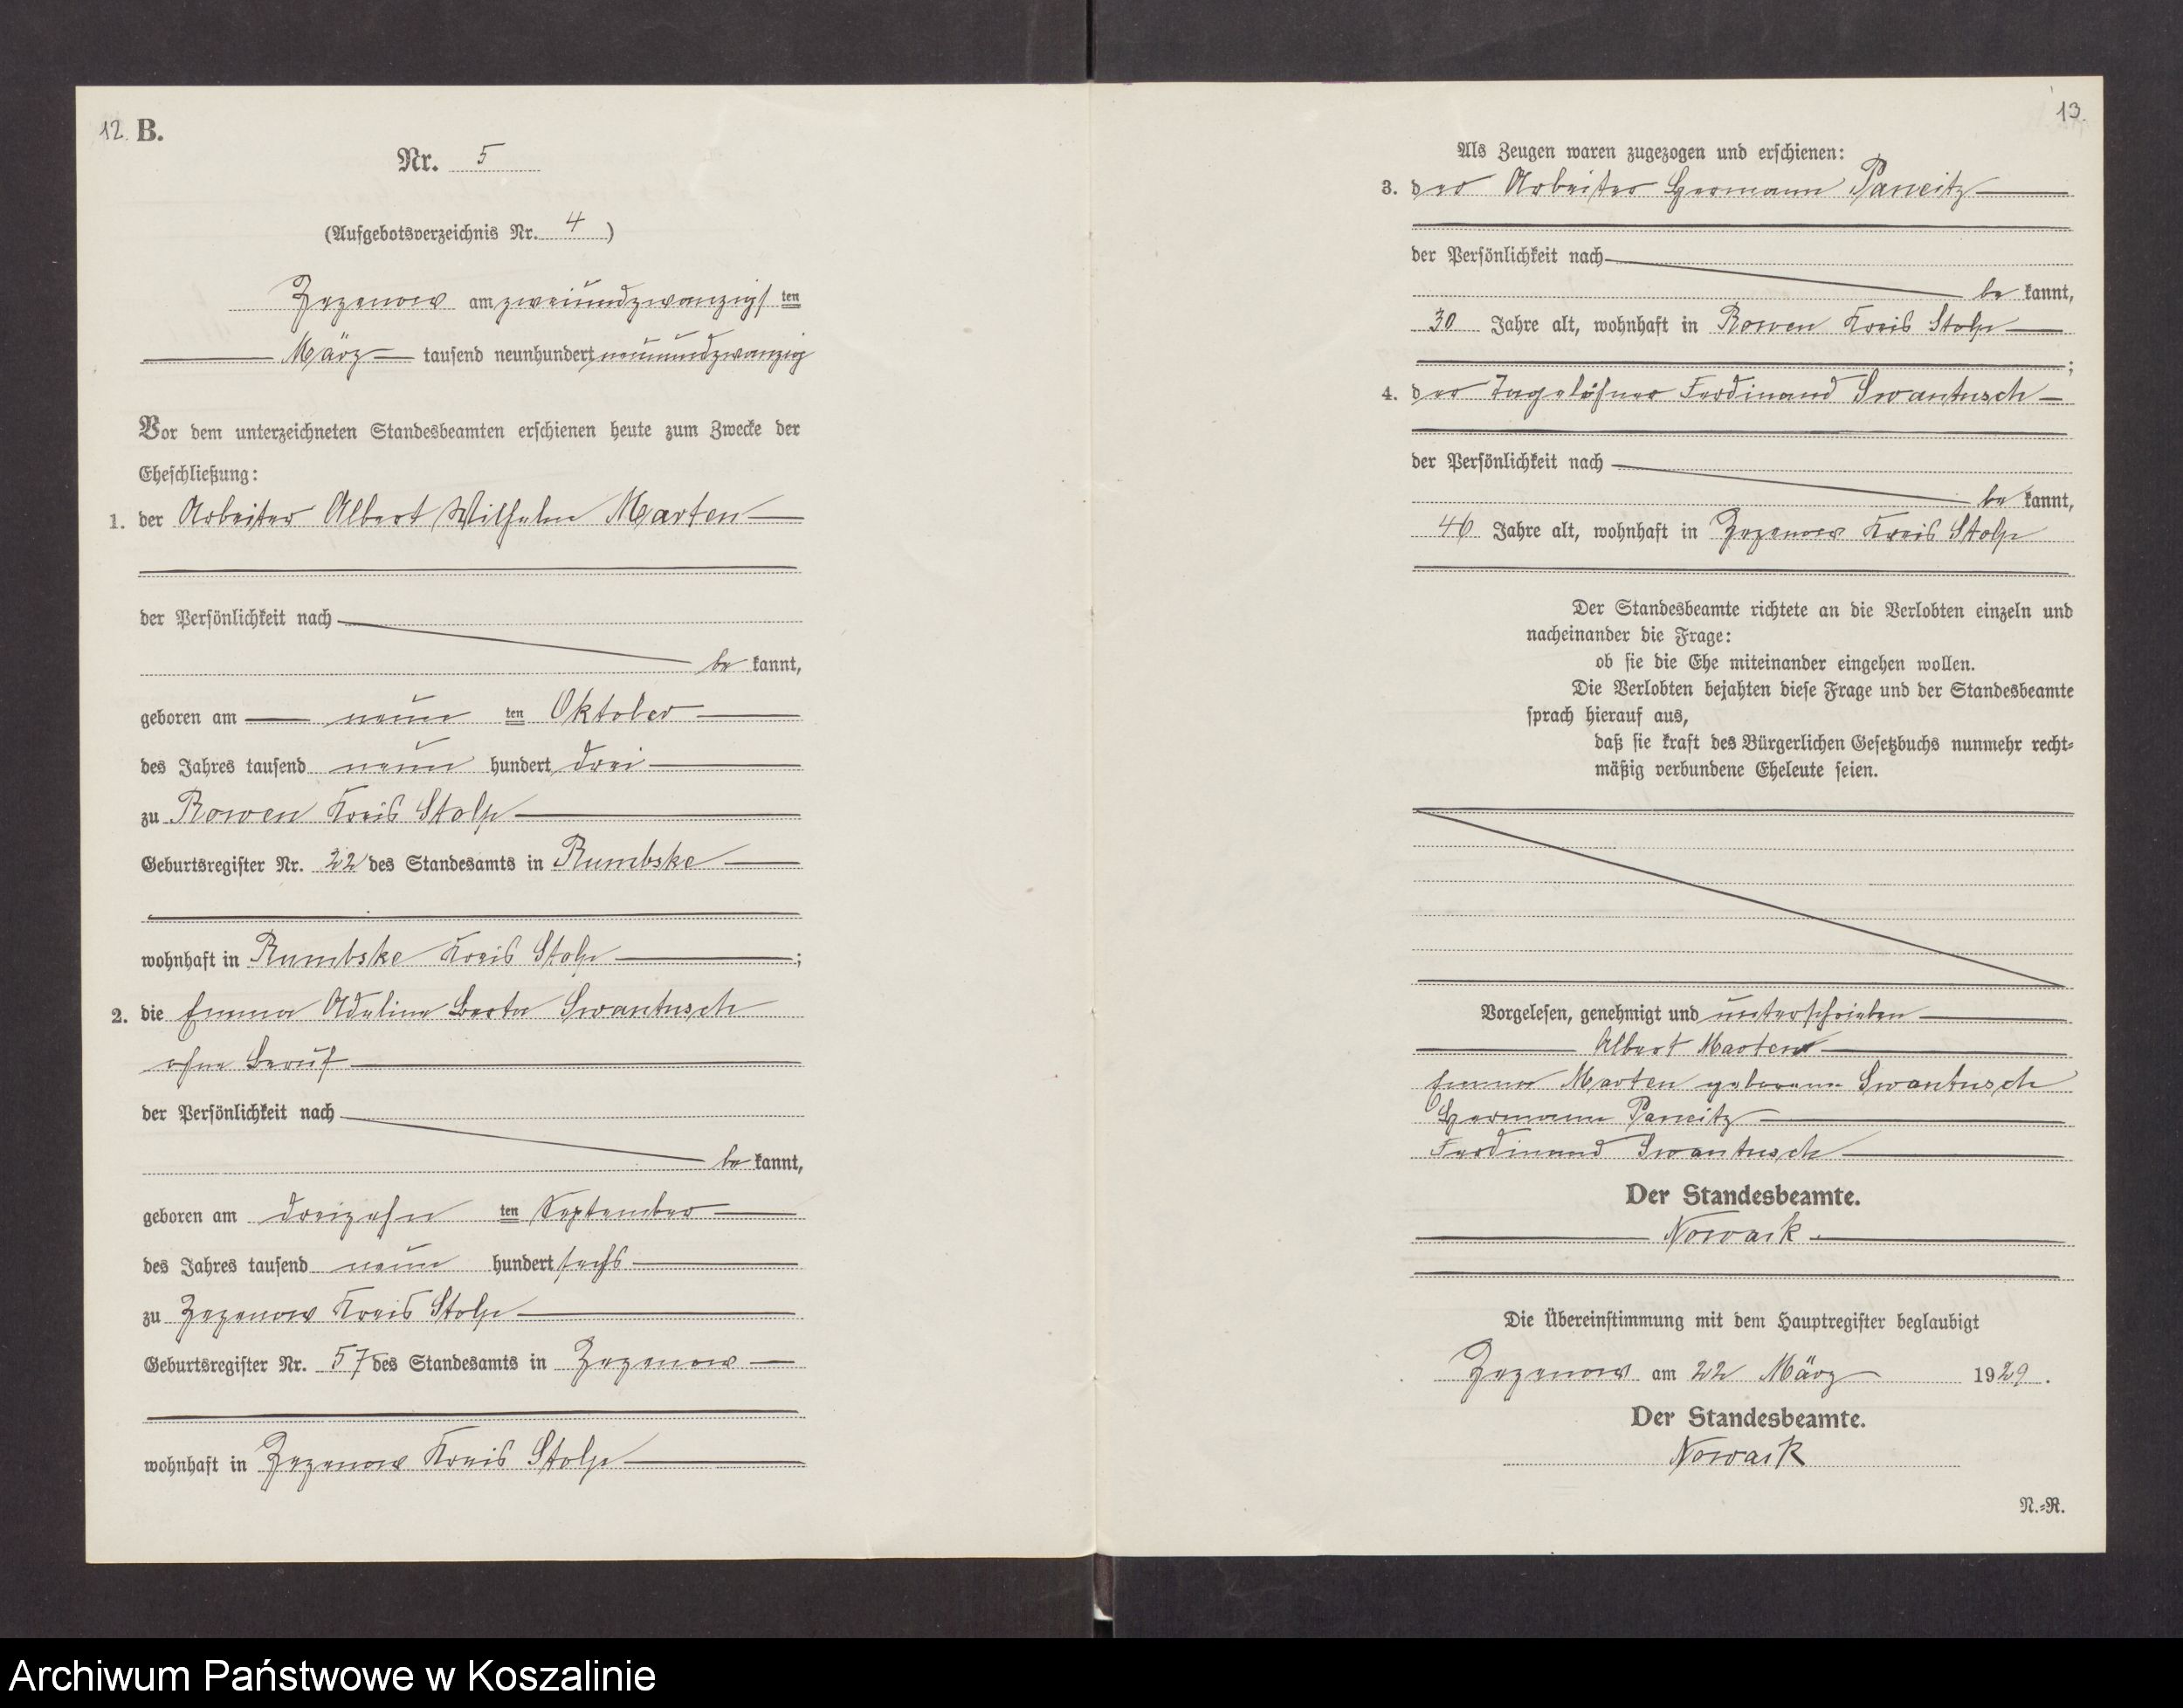 12. B.
Nr. 5
(Aufgebotsverzeichnis Nr. 4)
Zezenow am zweiundzwanzigsten
März tausend neunhundert neunundzwanzig
Vor dem unterzeichneten Standesbeamten erschienen heute zum Zwecke der
Eheschließung:
1. der Arbeiter Albert Wilhelm Marten
der Persönlichkeit nach
bekannt,
geboren am neunten Oktober
des Jahres tausend neun hundert drei
zu Rowen Kreis Stolp
Geburtsregister Nr. 22 des Standesamts in Rumbske
wohnhaft in Rumbske Kreis Stolp;
2. die Emma Adeline Berta Swantusch
ohne Beruf
der Persönlichkeit nach
bekannt,
geboren am dreizehnten September
des Jahres tausend neun hundert sechs
zu Zezenow Kreis Stolp
Geburtsregister Nr. 57 des Standesamts in Zezenow
wohnhaft in Zezenow Kreis Stolp
13.
Als Zeugen waren zugezogen und erschienen:
3. der Arbeiter Hermann Paneitz
der Persönlichkeit nach
bekannt,
30 Jahre alt, wohnhaft in Rowen Kreis Stolp
;
4. der Tagelöhner Ferdinand Swantusch
der Persönlichkeit nach
bekannt,
Jahre alt, wohnhaft in Zezenow Kreis Stolp
Der Standesbeamte richtete an die Verlobten einzeln und
nacheinander die Frage:
ob sie die Ehe miteinander eingehen wollen.
Die Verlobten bejahten diese Frage und der Standesbeamte
sprach hierauf aus,
daß sie kraft des Bürgerlichen Gesetzbuchs nunmehr recht-
mäßig verbundene Eheleute seien.
Vorgelesen, genehmigt und unterschrieben
Albert Marten
Emma Marten geborene Swantusch
Hermann Paneitz
Ferdinand Swantusch
Der Standesbeamte.
Nowack
Die Übereinstimmung mit dem Hauptregister beglaubigt
Zezenow am 22 März 1929.
Der Standesbeamte.
Nowack
N.-R.
Archiwum Państwowe w Koszalinie